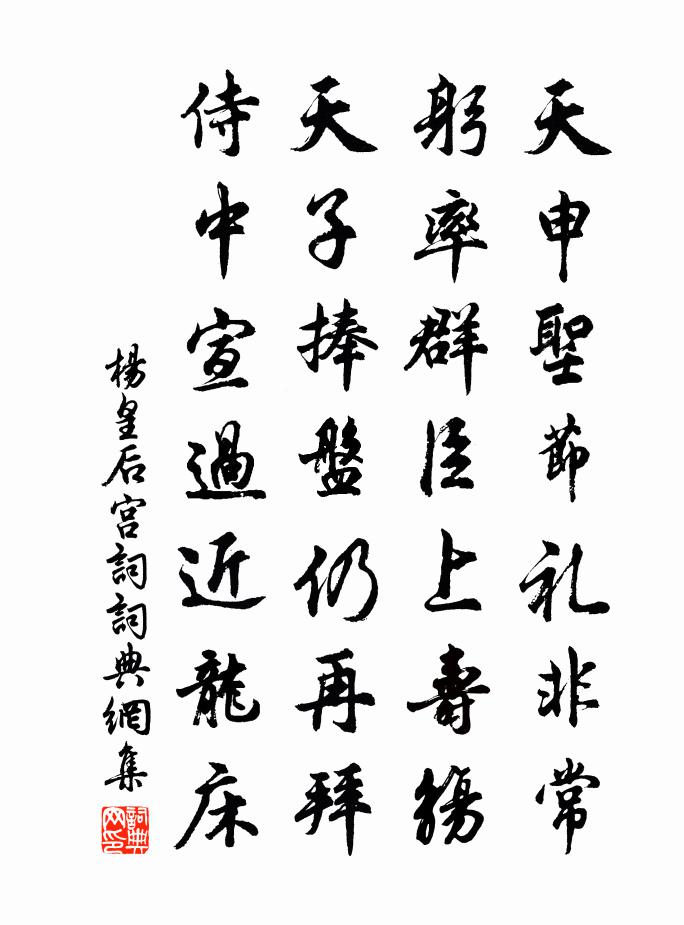 天申聖節礼非常
躬率群臣上壽觴
天子捧盤仍再拜
侍中宣過近龍床
楊皇后宫詞詞典網集
詞典网印